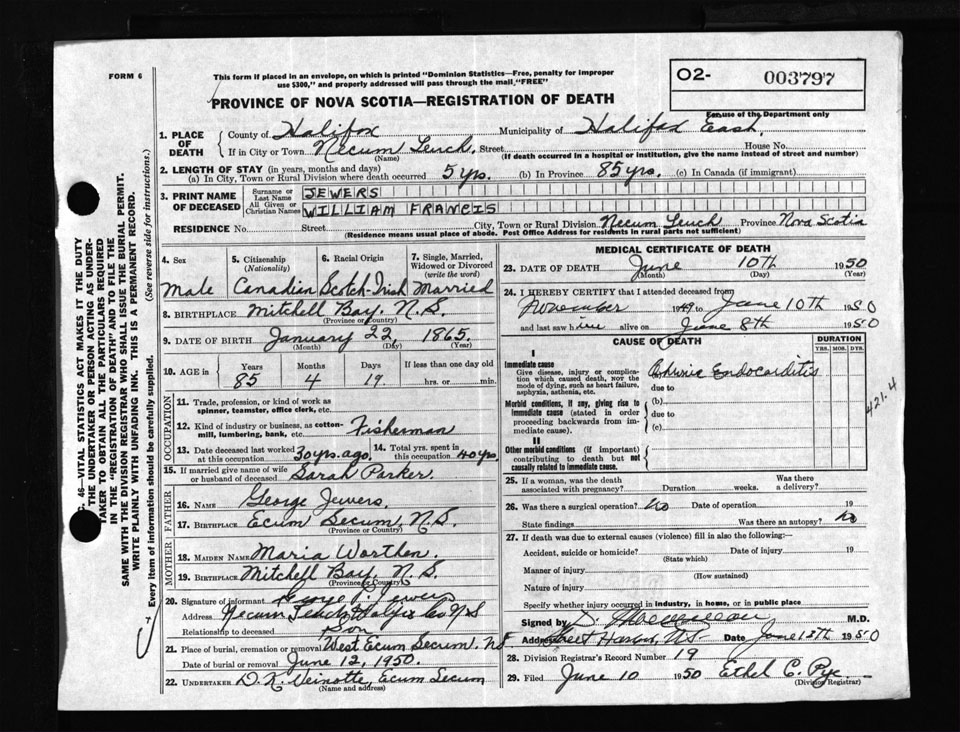 FORM 6
This form if placed in an envelope, on which is printed "Dominion Statistics—Free, penalty for improper
use $300," and properly addressed will pass through the mail "FREE"
PROVINCE OF NOVA SCOTIA—REGISTRATION OF DEATH
O2- 003797
For use of the Department only
1. PLACE OF DEATH
County of Halifax Municipality of Halifax East.
If in City or Town Necum Teuch. Street House No.
(Name) (If death occurred in a hospital or institution, give the name instead of street and number)
2. LENGTH OF STAY (in years, months and days)
(a) In City, Town or Rural Division where death occurred 5 yrs. (b) In Province 85 yrs. (c) In Canada (if immigrant)
3. PRINT NAME OF DECEASED
Surname or Last Name JEWERS
All Given or Christian Names WILLIAM FRANCIS
RESIDENCE No. Street City, Town or Rural Division Necum Teuch Province Nova Scotia
(Residence means usual place of abode. Post Office Address for residents in rural parts not sufficient)
4. Sex 5. Citizenship (Nationality) 6. Racial Origin 7. Single, Married, Widowed or Divorced (write the word)
Male Canadian Scotch-Irish Married
8. BIRTHPLACE Mitchell Bay, N.S.
(Province or Country)
9. DATE OF BIRTH January 22, 1865.
(Month) (Day) (Year)
10. AGE in Years Months Days If less than one day old
85 4 19 hrs. or min.
OCCUPATION
11. Trade, profession, or kind of work as spinner, teamster, office clerk, etc.
12. Kind of industry or business, as cotton-mill, lumbering, bank, etc. Fisherman
13. Date deceased last worked at this occupation 30 yrs. ago. 14. Total yrs. spent in this occupation 40 yrs.
15. If married give name of wife or husband of deceased Sarah Parker.
FATHER
16. NAME George Jewers
17. BIRTHPLACE Ecum Secum, N.S.
(Province or Country)
MOTHER
18. MAIDEN NAME Maria Worthen.
19. BIRTHPLACE Mitchell Bay, N.S.
(Province or Country)
20. Signature of informant George Jewers
Address Necum Teuch Halifax Co N S
Relationship to deceased Son
21. Place of burial, cremation or removal West Ecum Secum, NS
Date of burial or removal June 12, 1950.
22. UNDERTAKER Ecum Secum
(Name and address)
MEDICAL CERTIFICATE OF DEATH
23. DATE OF DEATH June 10th 1950
(Month) (Day) (Year)
24. I HEREBY CERTIFY that I attended deceased from
November 1949 to June 10th 1950
and last saw him alive on June 8th 1950
CAUSE OF DEATH
DURATION
YRS. MOS. DYS.
I
Immediate cause
Give disease, injury or complication which caused death, NOT the mode of dying, such as heart failure, asphyxia, asthenia, etc.
Endocarditis
due to
Morbid conditions, if any, giving rise to immediate cause (stated in order proceeding backwards from immediate cause).
(b)
due to
(c)
II
Other morbid conditions (if important) contributing to death but not causally related to immediate cause.
421.4
25. If a woman, was the death associated with pregnancy? Duration weeks. Was there a delivery?
26. Was there a surgical operation? No Date of operation 19
State findings Was there an autopsy? No
27. If death was due to external causes (violence) fill in also the following:—
Accident, suicide or homicide? Date of injury 19
(State which)
Manner of injury
(How sustained)
Nature of injury
Specify whether injury occurred in industry, in home, or in public place
Signed by M.D.
Address Sheet Harbor, NS Date June 12th 1950
28. Division Registrar's Record Number 19
29. Filed June 10 1950 Ethel C. Pye
(Division Registrar)
46—VITAL STATISTICS ACT MAKES IT THE DUTY
THE UNDERTAKER OR PERSON ACTING AS UNDER-
TAKER TO OBTAIN ALL THE PARTICULARS REQUIRED
IN THE "REGISTRATION OF DEATH" AND TO FILE THE
SAME WITH THE DIVISION REGISTRAR WHO SHALL ISSUE THE BURIAL PERMIT.
WRITE PLAINLY WITH UNFADING INK. THIS IS A PERMANENT RECORD.
Every item of information should be carefully supplied. (See reverse side for instructions.)